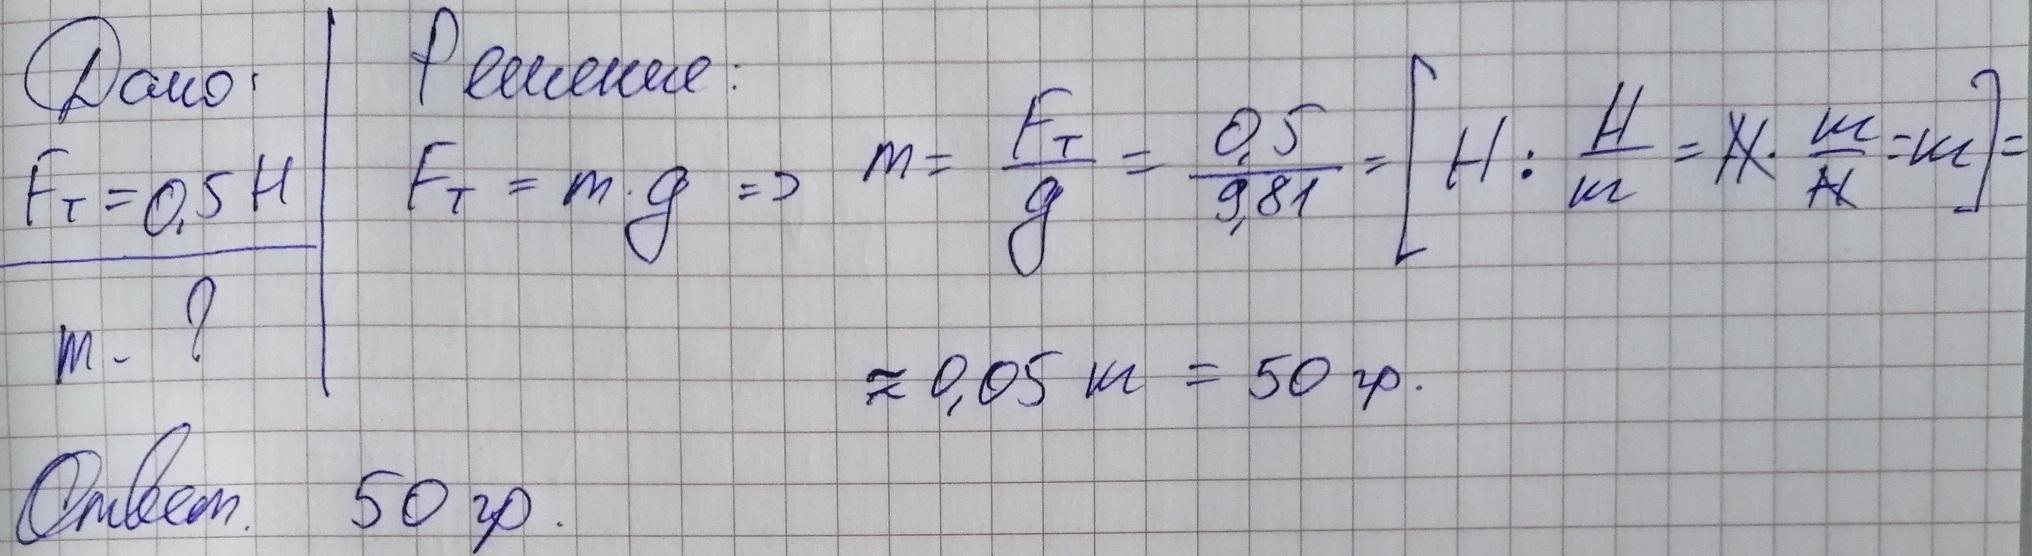 Дано:
Fт = 0,5 Н
m - ?
Решение:
Fт = m · g => m = Fт / g = 0,5 / 9,81 = [ Н : Н / кг = Н · кг / Н = кг ] =
≈ 0,05 кг = 50 гр.
Ответ. 50 гр.